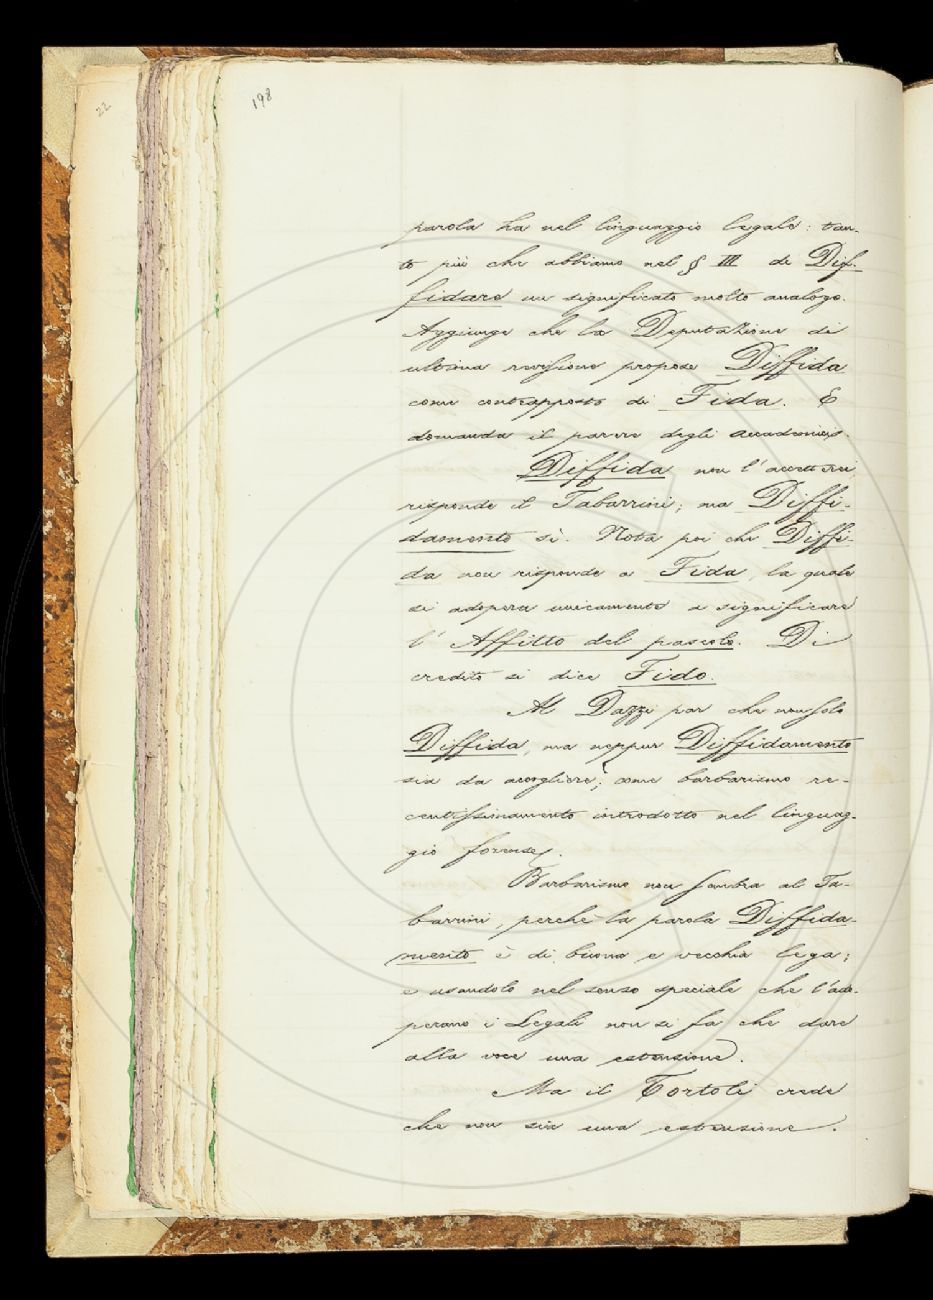 22
198
parola ha nel linguaggio legale: tan-
to più che abbiamo nel § III di Dif-
fidare un significato molto analogo.
Aggiunge che la Deputazione di
ultima revisione propose Diffida
come contrapposto di Fida. E
domanda il parere degli accademici.
Diffida non l'accetterei
risponde il Tabarrini; ma Diffi-
damento sì. Nota poi che Diffi-
da non risponde a Fida, la quale
si adopera unicamente a significare
l'Affitto del pascolo. Di
credito si dice Fido.
Al Dazzi par che non solo
Diffida, ma neppur Diffidamento
sia da accogliere; come barbarismo re-
centissimamente introdotto nel linguag-
gio forense.
Barbarismo non sembra al Ta-
barrini, perchè la parola Diffida-
mento è di buona e vecchia lega;
e usandolo nel senso speciale che l'ado-
perano i Legali non si fa che dare
alla voce una estensione.
Ma il Tortoli crede
che non sia una estensione.